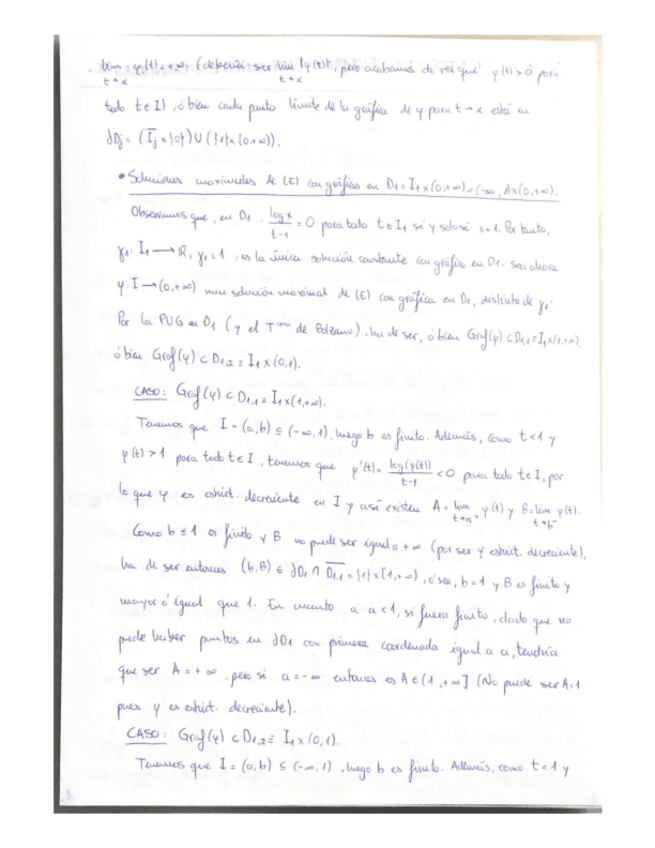 lim φ(t) = +∞, (debería ser lim |φ(t)|, pero acabamos de ver que φ(t) > 0 para
t→α t→α
todo t ∈ I), ó bien cada punto límite de la gráfica de φ para t→α está en
∂Dj = (Īj × {0}) ∪ ({1} × [0,+∞)).
• Soluciones maximales de (E) con gráfica en D1 = I1 × (0,+∞) = (-∞, 1) × (0,+∞).
Observamos que, en D1, log x / t-1 = 0 para todo t ∈ I1 si y solo si x = 1. Por tanto,
γ1: I1 → R, γ1 = 1, es la única solución constante con gráfica en D1. Sea ahora
φ: I → (0,+∞) una solución maximal de (E) con gráfica en D1, distinta de γ1.
Por la PUG en D1 (y el T de Bolzano), ha de ser, ó bien Graf(φ) ⊂ D1,1 = I1×(1,+∞),
ó bien Graf(φ) ⊂ D1,2 = I1 × (0,1).
CASO: Graf(φ) ⊂ D1,1 = I1×(1,+∞).
Tenemos que I = (a,b) ⊆ (-∞, 1), luego b es finito. Además, como t < 1 y
φ(t) > 1 para todo t ∈ I, tenemos que φ'(t) = log(φ(t)) / t-1 < 0 para todo t ∈ I, por
lo que φ es estrict. decreciente en I y así existen A = lim φ(t) y B = lim φ(t).
t→a⁺ t→b⁻
Como b ≤ 1 es finito y B no puede ser igual a +∞ (por ser φ estrict. decreciente),
ha de ser entonces (b,B) ∈ ∂D1 ∩ D̄1,1 = {1} × [1,+∞), o sea, b = 1 y B es finito y
mayor ó igual que 1. En cuanto a a < 1, si fuera finito, dado que no
puede haber puntos en ∂D1 con primera coordenada igual a a, tendría
que ser A = +∞, pero si a = -∞ entonces es A ∈ (1, +∞] (No puede ser A=1
pues φ es estrict. decreciente).
CASO: Graf(φ) ⊂ D1,2 = I1 × (0,1).
Tenemos que I = (a,b) ⊆ (-∞, 1), luego b es finito. Además, como t < 1 y